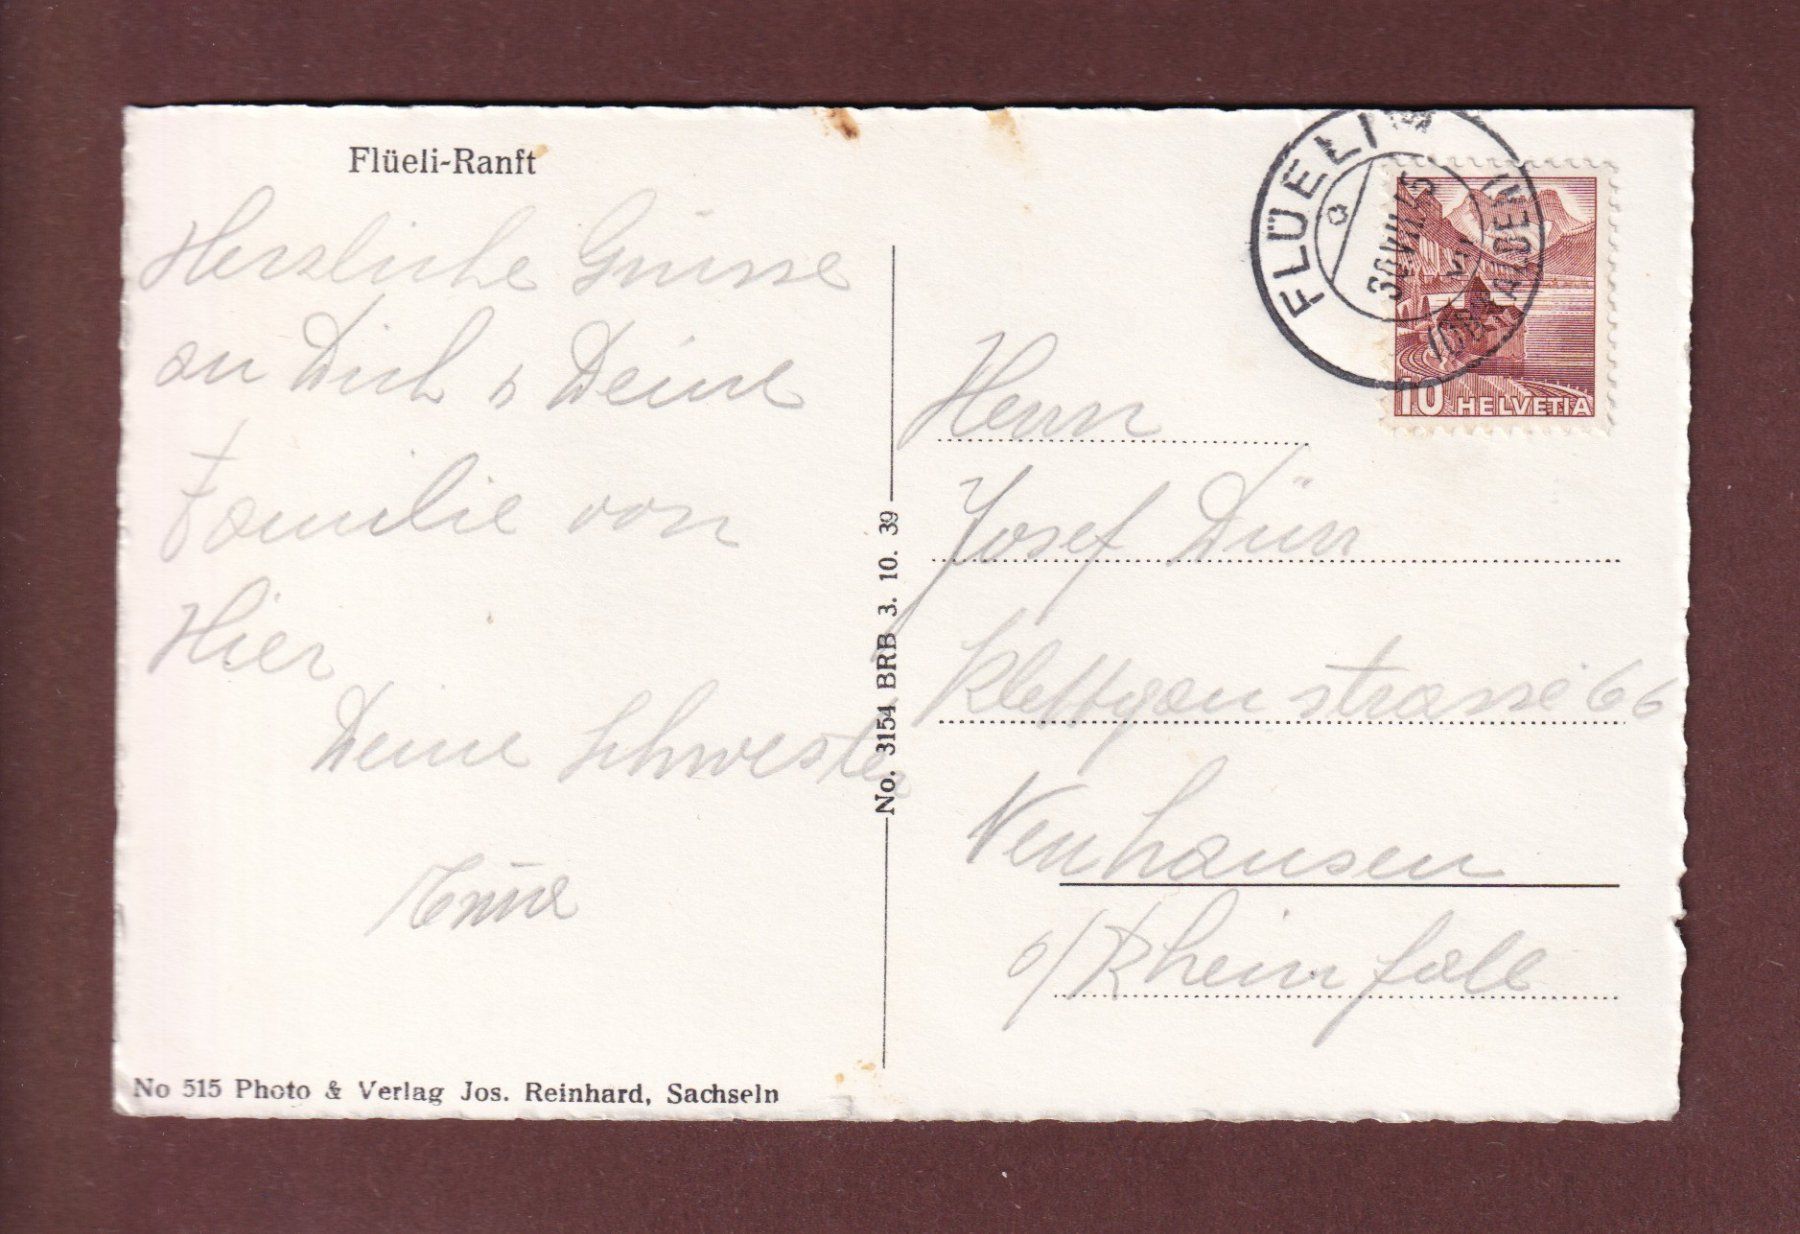 Flüeli-Ranft
Herzliche Grüsse
an Dich & Deine
Familie von
Hier
Deine Schwester
No. 3154 BRB 3. 10. 39
No 515 Photo & Verlag Jos. Reinhard, Sachseln
FLÜELI
(OBWALDEN)
30.VII.45
10 HELVETIA
Herrn
Josef Dürr
Klettgaustrasse 66
Neuhausen
a/Rheinfall